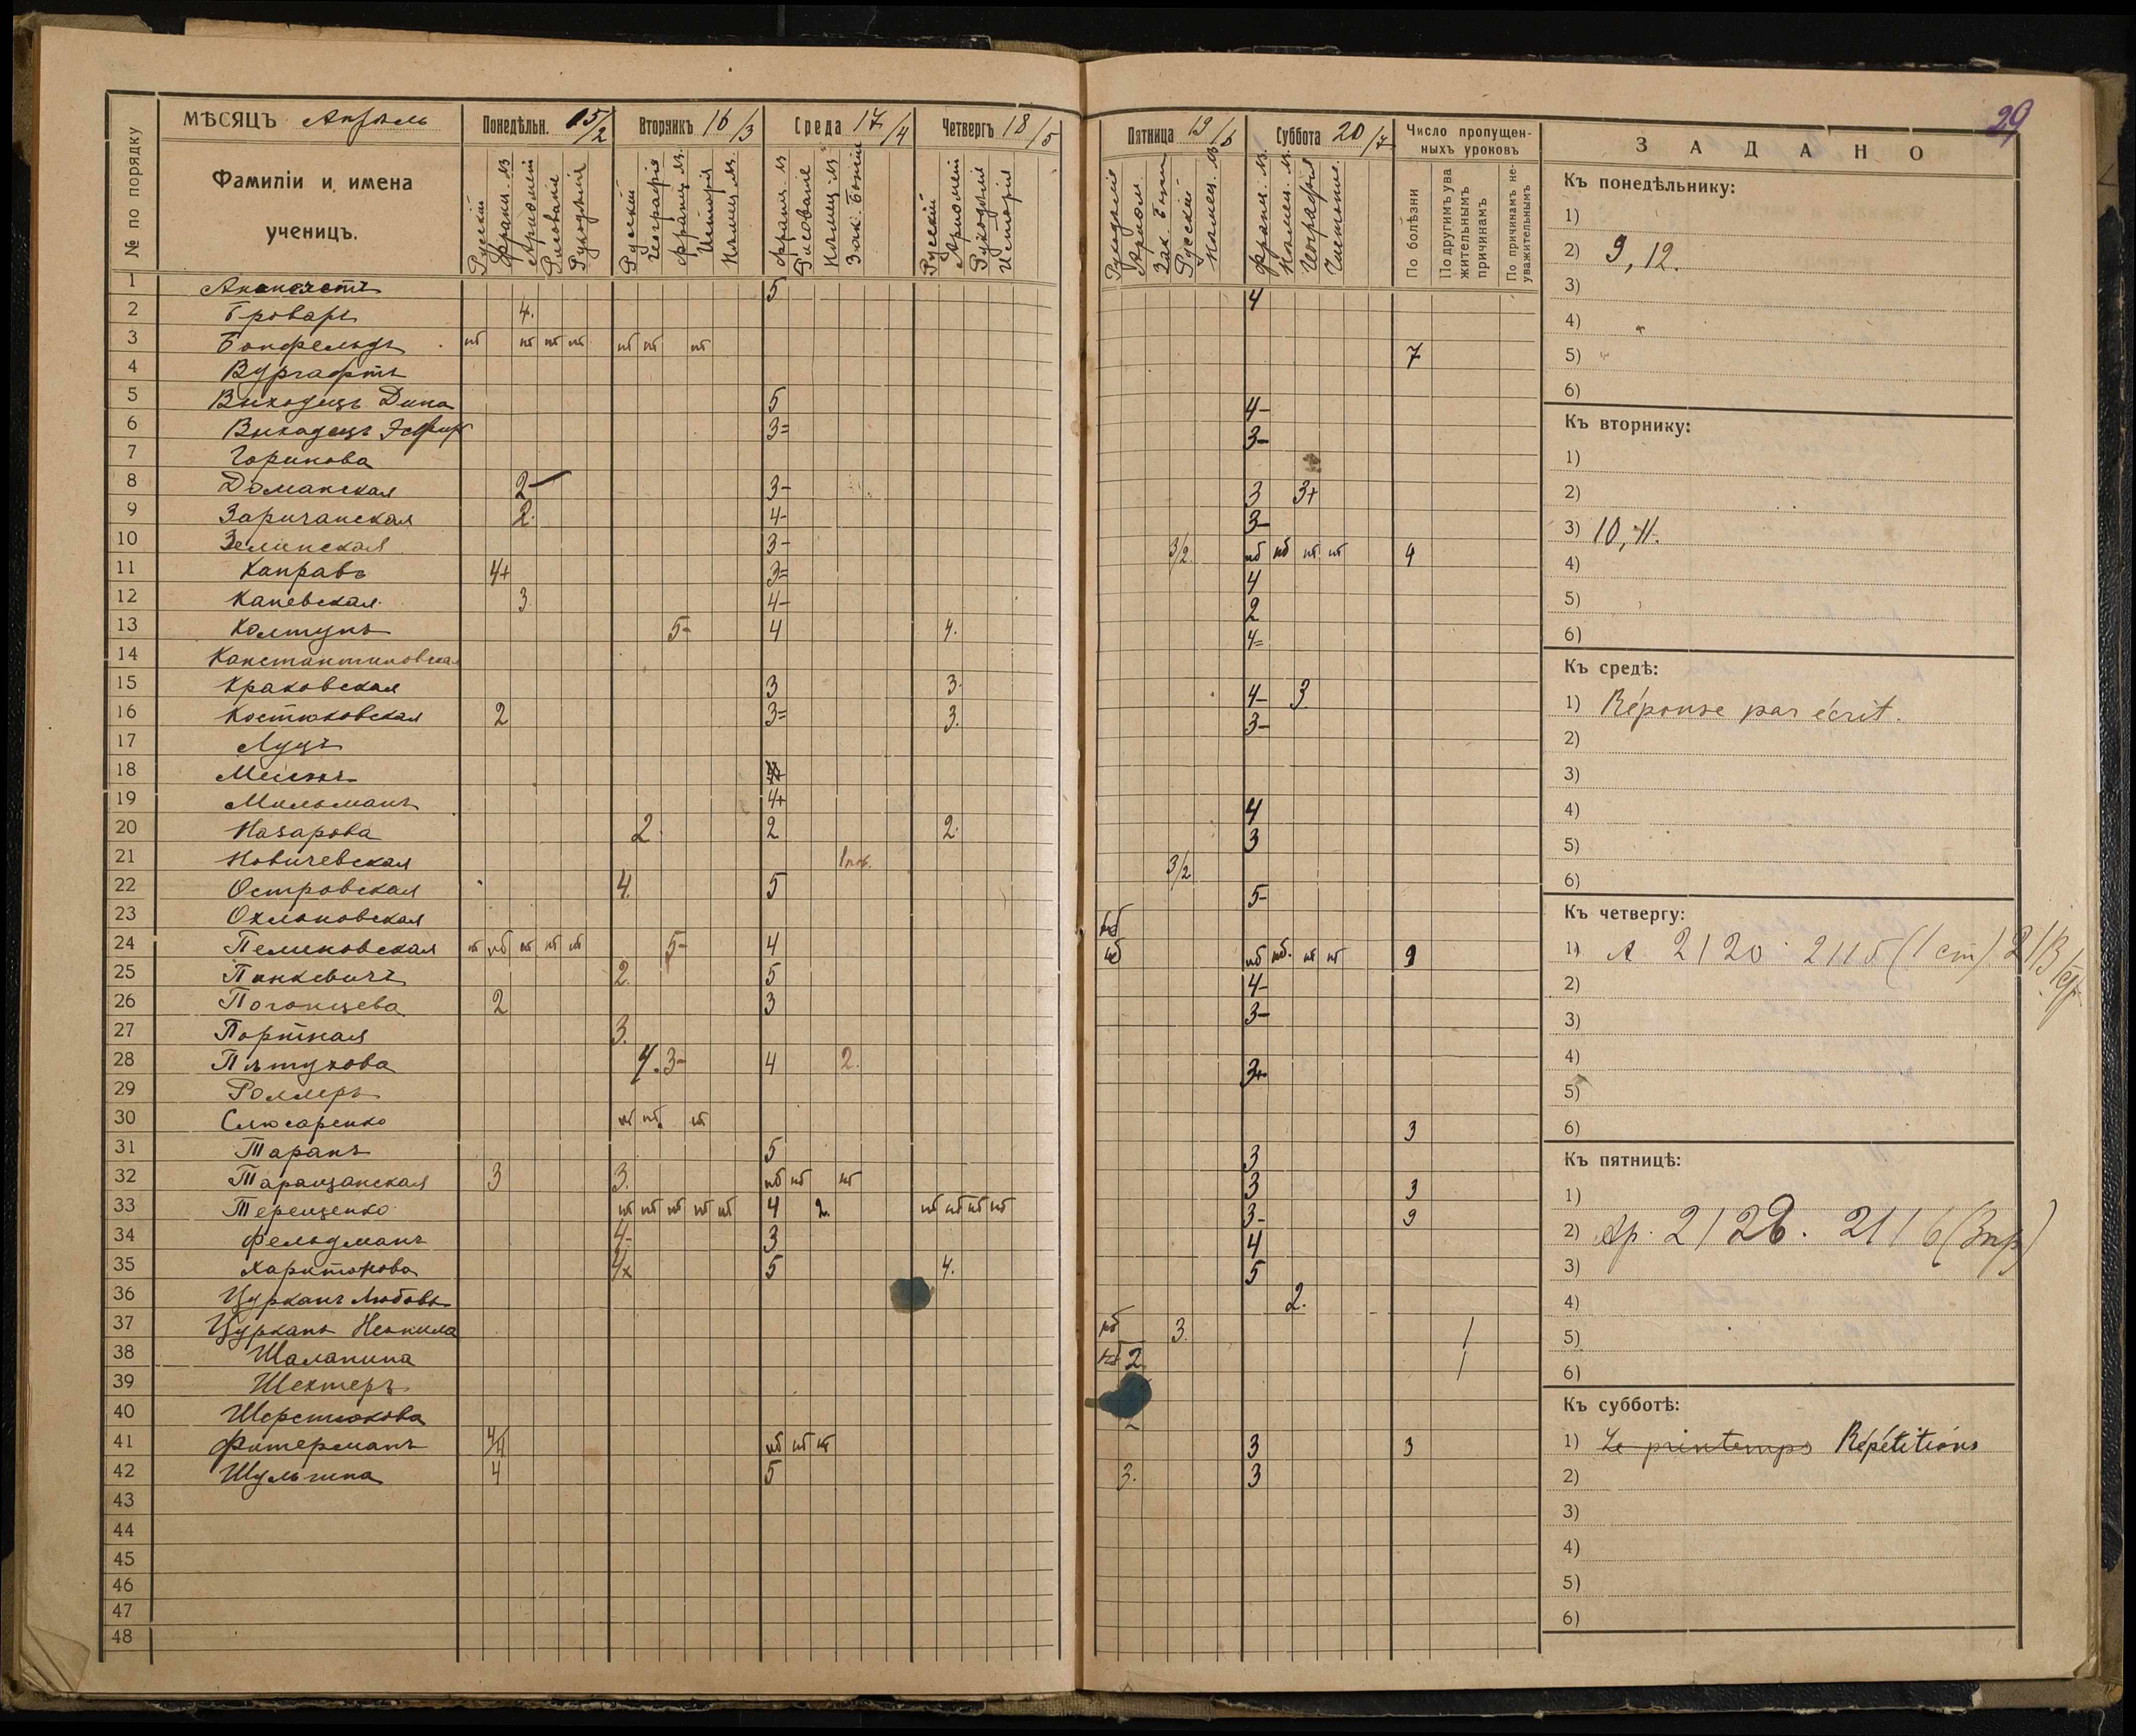 29
МѢСЯЦЪ Апрѣль
№ по порядку
Фамиліи и имена
ученицъ.
Понедѣльн. 15/2
Вторникъ 16/3
Среда 17/4
Четвергъ 18/5
Русскій
Франц. яз
Рисованіе
Рукодѣліе
Русскій
Географія
Франц. яз.
Исторія
Нѣмец. яз.
Франц. яз
Рисованіе
Нѣмец. яз
Зак. Божій
Русскій
Рукодѣліе
Исторія
Пятница 19/6
Суббота 20/7
Число пропущен-
ныхъ уроковъ
Рукодѣліе
Зак. Бож
Русскій
Нѣмец. яз
Франц. яз.
Нѣмец. яз.
Географія
По болѣзни
По другимъ ува
жительнымъ
причинамъ
По причинамъ не-
уважительнымъ
1 5 4
2 Броваръ 4.
3 нб нб нб нб нб нб нб 7
4 Вургафтъ
5 Выходецъ Дина 5 4-
6 Выходецъ Эсфирь 3= 3-
7 Горинова
8 Доманская 2- 3- 3 3+
9 Заричанская 2. 4- 3-
10 Зелинская 3- 3/2 нб нб нб нб 4
11 4+ 3= 4
12 Каневская 3. 4- 2
13 Колтунъ 5- 4 4. 4=
14 Константиновская
15 Краковская 3 3. 4- 3
16 Костюковская 2 3= 3. 3-
17 Луцъ
18
19 Мильманъ 4+ 4
20 Назарова 2. 2 2. 3
21 Новичевская 3/2
22 Островская 4. 5 5-
23 Охлоповская нб
24 Пелиновская нб нб нб нб нб 5- 4 нб нб нб. нб нб 9
25 Пинкевичъ 2. 5 4-
26 Погонцева 2 3 3-
27 Портная 3.
28 Пѣтухова 4. 3- 4 2. 3+
29 Роллеръ
30 Слюсаренко нб нб. нб 3
31 Таранъ 5 3
32 Таращанская 3 3. нб нб нб 3 3
33 Терещенко нб нб нб нб нб 4 2. нб нб нб нб 3- 9
34 Фельдманъ 4- 3 4
35 Харитонова 5 4. 5
36 Цурканъ Любовь 2.
37 Цурканъ Неонила нб 3. /
38 Шалапина нб 2 /
39 Шехтеръ
40 Шерстюкова
41 Фитерманъ нб нб нб 3 3
42 Шульгина 4 5 3. 3
43
44
45
46
47
48
ЗАДАНО
Къ понедѣльнику:
1)
2) 9, 12.
3)
4)
5)
6)
Къ вторнику:
1)
2)
3) 10, 11.
4)
5)
6)
Къ средѣ:
1) Réponse par écrit.
2)
3)
4)
5)
6)
Къ четвергу:
1)
2)
3)
4)
5)
6)
Къ пятницѣ:
1)
2)
3)
4)
5)
6)
Къ субботѣ:
1) Le printemps Répétitions
2)
3)
4)
5)
6)